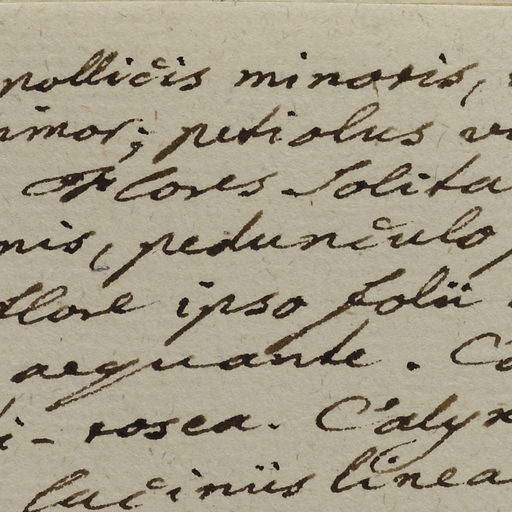 pollicis minoris,
petiolus
Flores Solita
nis, pedunculo
flore ipso folii
aequante. Co
i-rosea. Calyx
laciniis linea